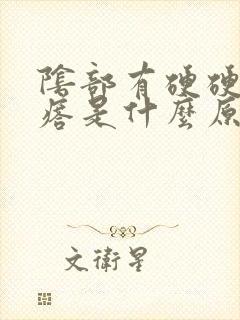 陰部有硬硬
痞是什麼原
文衛星